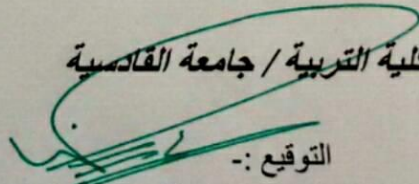 كلية التربية / جامعة القادسية
التوقيع :-